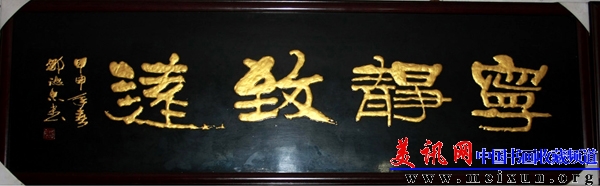 寧靜致遠
甲申年春
鄒德忠書
美讯网 中国书画收藏频道
www.meixun.org